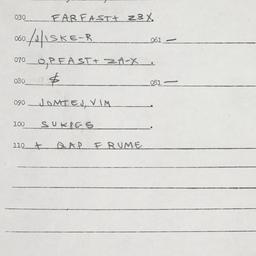 030 FARFAST+ Z3X
060 /1/ISKE-R 061 —
070 O,PFAST+ ZA-X .
080 $ 081 —
090 JOMTEJ, VIM .
100 SUKPES .
110 + GAP FRUME